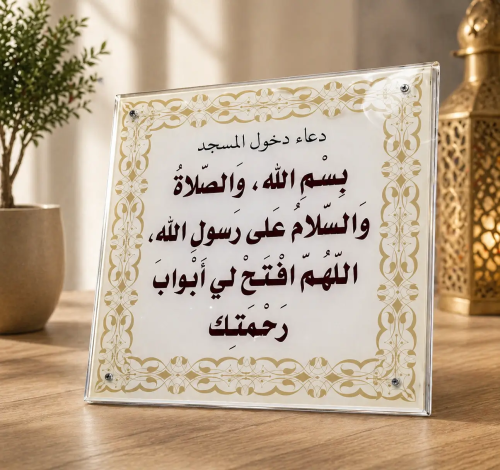 دعاء دخول المسجد
بِسْمِ الله، وَالصّلاةُ
وَالسّلامُ عَلى رَسولِ الله،
اللّهُمّ افْتَحْ لي أَبْوابَ
رَحْمَتِـكَ